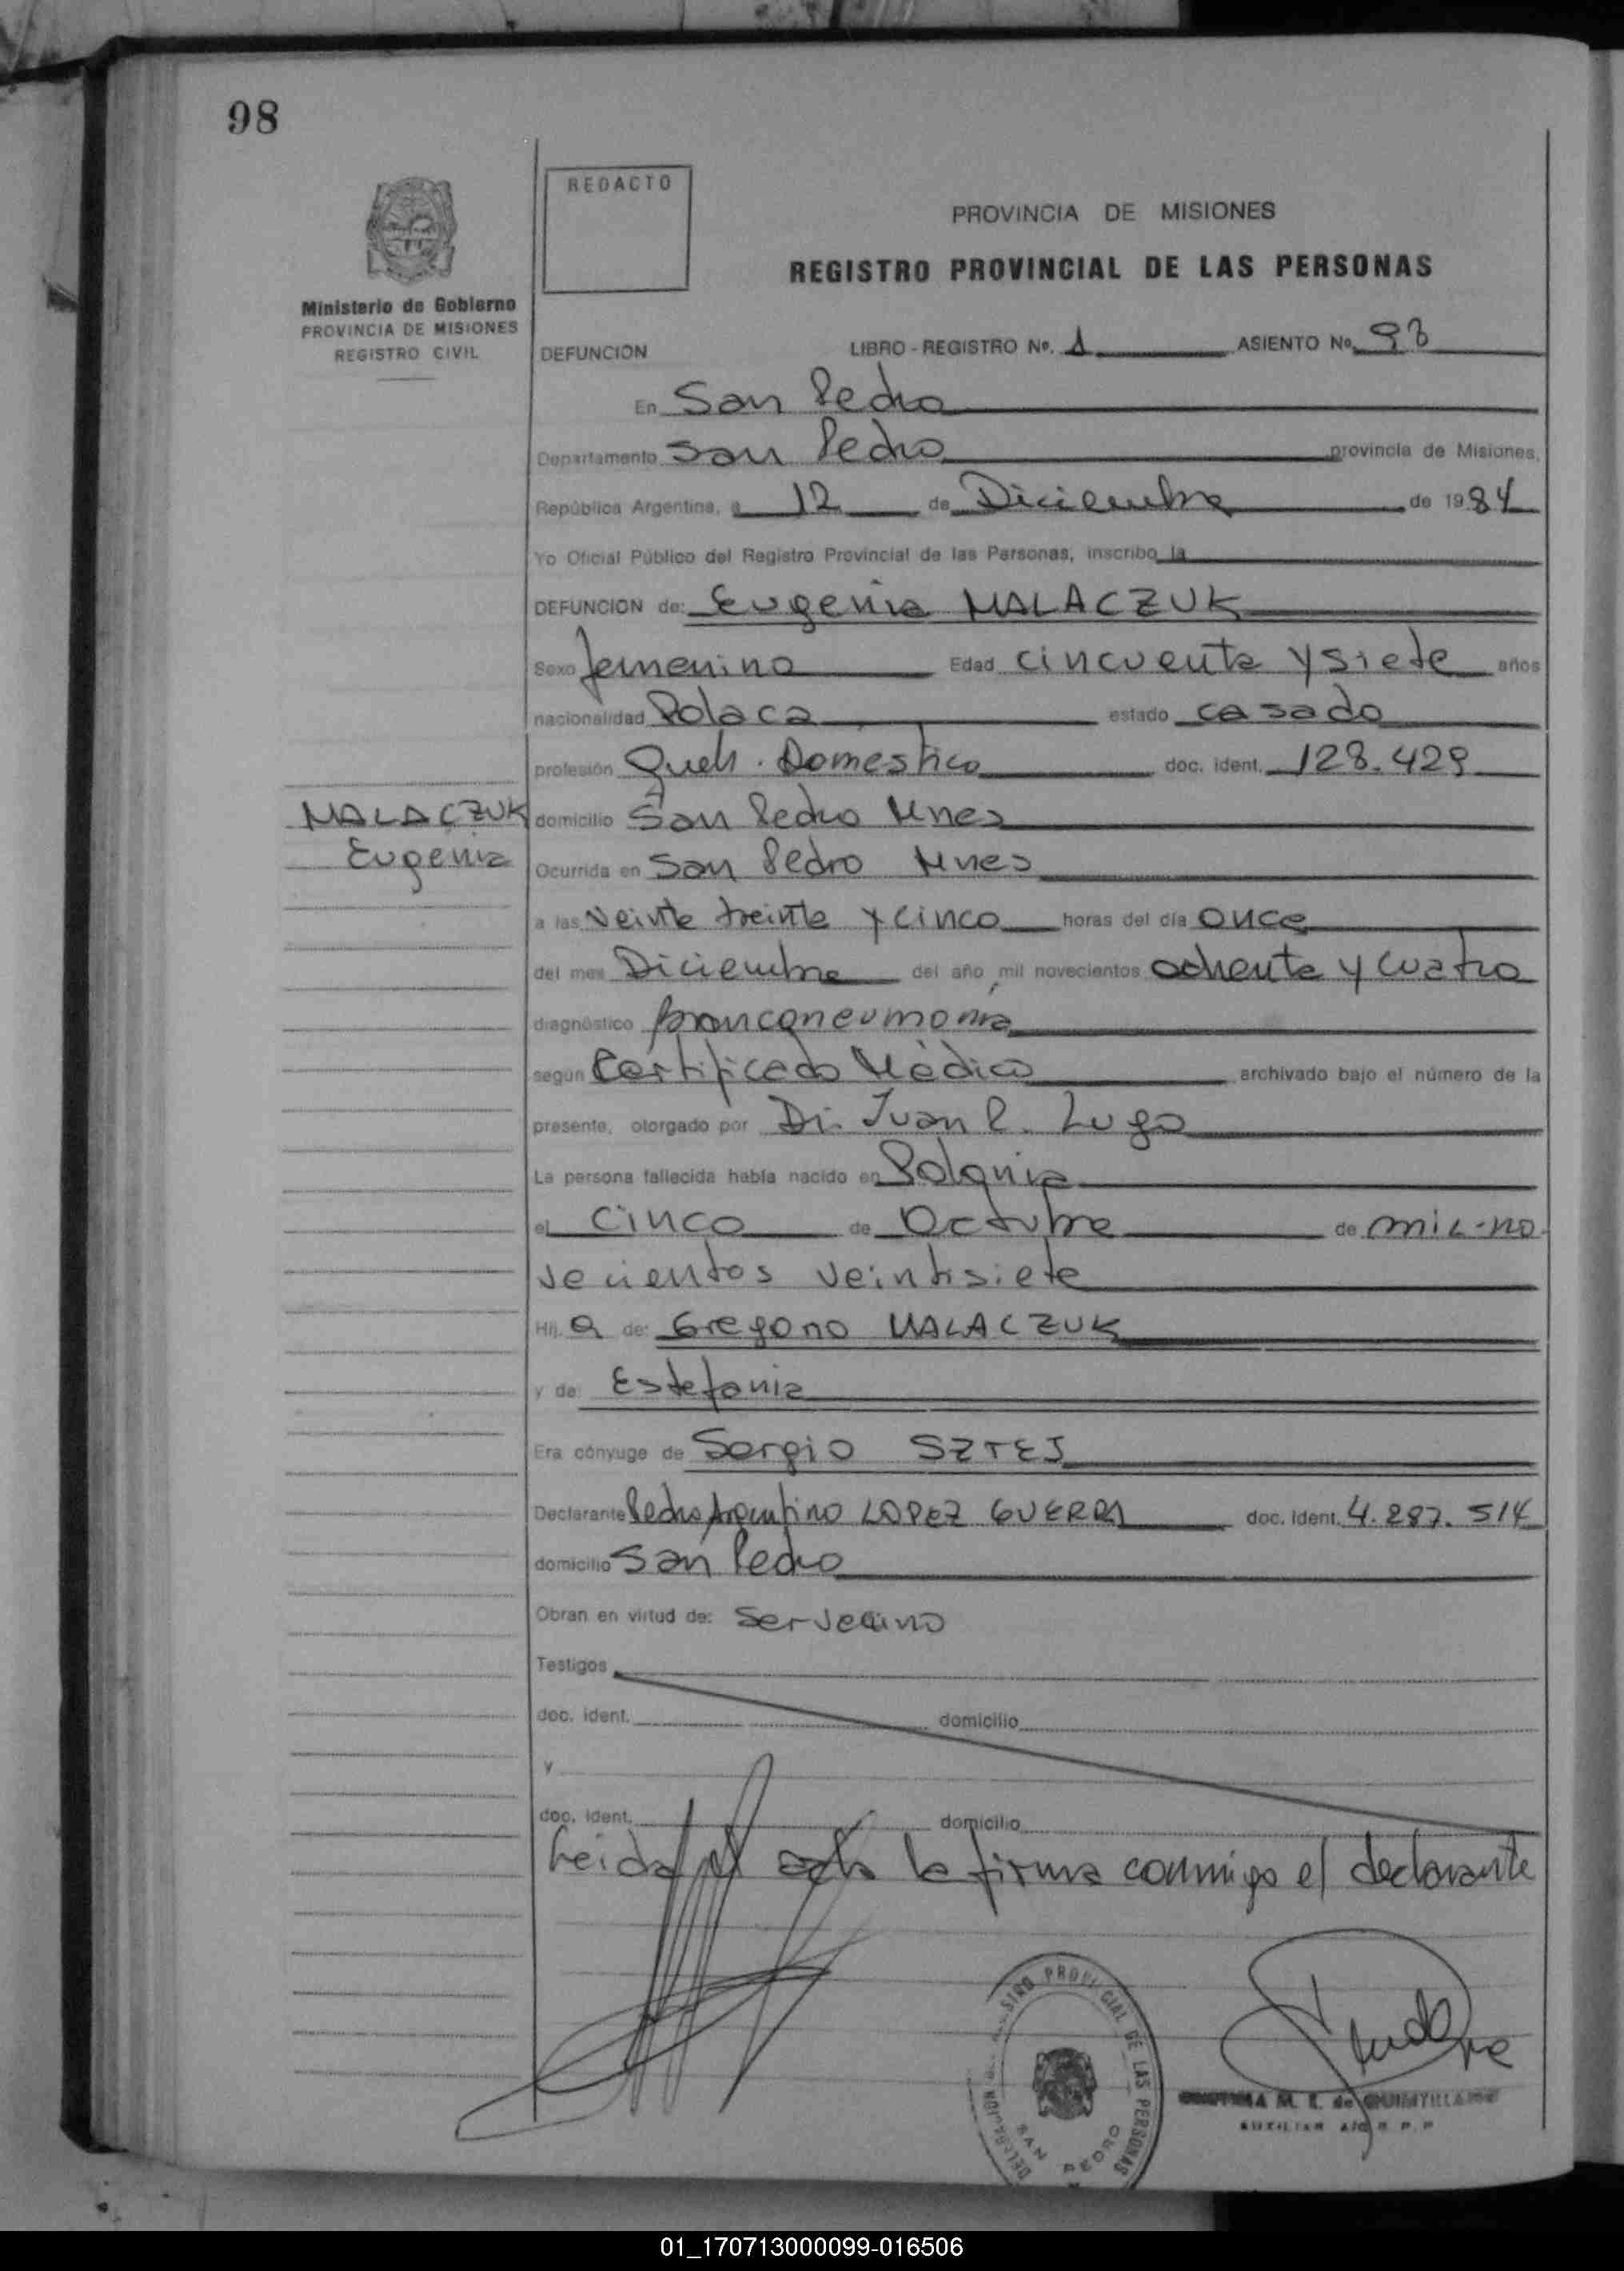 98
REDACTO
PROVINCIA DE MISIONES
REGISTRO PROVINCIAL DE LAS PERSONAS
Ministerio de Gobierno
PROVINCIA DE MISIONES
REGISTRO CIVIL
DEFUNCION LIBRO - REGISTRO Nº. 1 ASIENTO Nº 98
En San Pedro
Departamento San Pedro provincia de Misiones,
República Argentina, a 12 de Diciembre de 1984
Yo Oficial Público del Registro Provincial de las Personas, inscribo la
DEFUNCION de: Eugenia MALACZUK
Sexo femenino Edad cincuenta y siete años
nacionalidad Polaca estado casado
profesión Queh. Domestico doc. ident. 128.429
MALACZUK
Eugenia
domicilio San Pedro Mnes
Ocurrida en San Pedro Mnes
a las veinte treinta y cinco horas del día once
del mes Diciembre del año mil novecientos ochenta y cuatro
diagnóstico bronconeumonía
según Certificado Médico archivado bajo el número de la
presente, otorgado por Dr. Juan R. Lugo
La persona fallecida había nacido en Polonia
el cinco de Octubre de mil no-
vecientos veintisiete
Hij a de: Gregorio MALACZUK
y de: Estefania
Era cónyuge de Sergio SZTEJ
Declarante Pedro Argentino LOPEZ GUERRA doc. ident. 4.287.514
domicilio San Pedro
Obran en virtud de: ser vecino
Testigos
doc. ident. domicilio
y
doc. ident. domicilio
Leida el acta la firma conmigo el declarante
REGISTRO PROVINCIAL DE LAS PERSONAS
DELEGACION
SAN PEDRO
M. E. de
AUXILIAR
01_170713000099-016506